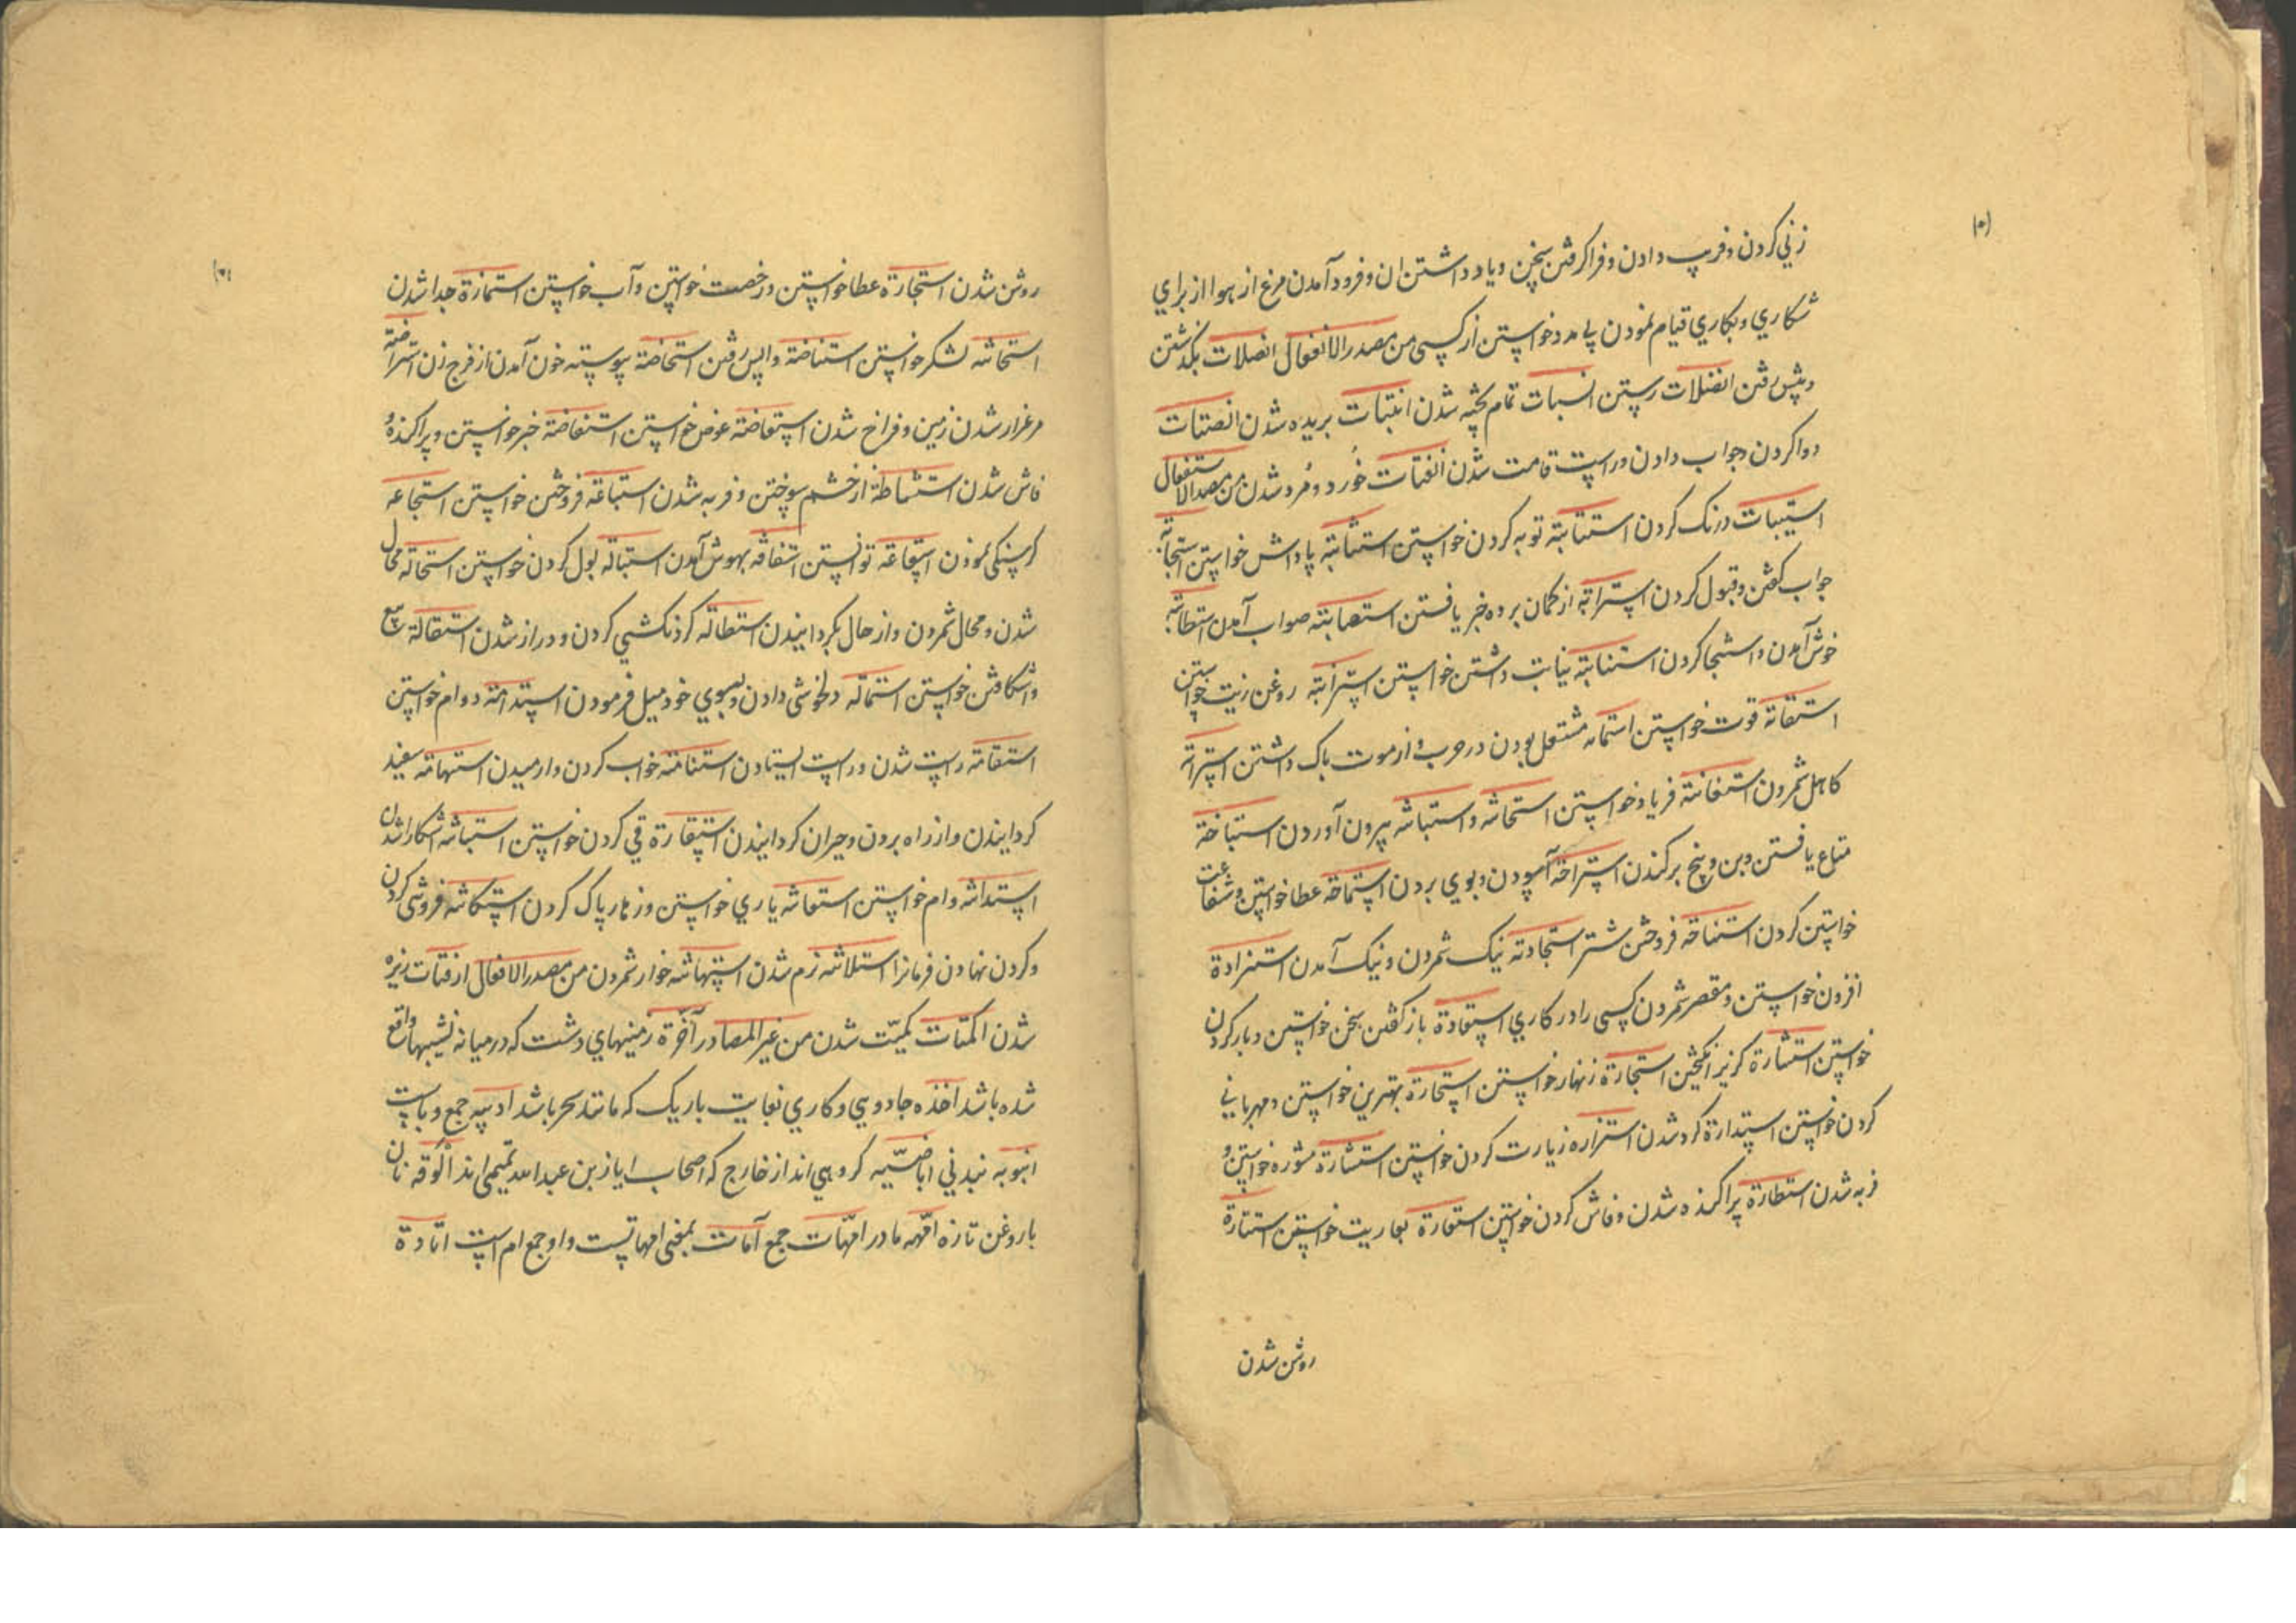 زني کردن و فريب دادن و فرا کرفتن سخن و ياد داشتن ان و فرود آمدن مرغ از هوا از براي
شکاري و بکاري قيام نمودن پا مرد خواستن از کسي من مصدر الانفعال انصلات بکذشتن
و پيش رفتن انفلات رستن انسبات تمام پخته شدن انبتات بريده شدن انصتات
دوا کردن و جواب دادن و راست قامت شدن انفتات خُورد و مُرد شدن من مصدر الاستفعال
استيبات درنک کردن استتابة توبه کردن خواستن استثابة پاداش خواستن استجابة
جواب کفتن و قبول کردن استرابة از کمان برده خبر يافتن استصابة صواب آمدن استطابة
خوش آمدن و استنجا کردن استنابة نيابت داشتن خواستن استزابة روغن زيت خواستن
استقاتة قوت خواستن استماته مشتعل بودن در حرب و از موت باک داشتن استراثة
کاهل شمردن استغاثة فرياد خواستن استحاثه و استباثه بيرون آوردن استباخة
متاع يافتن و بن و بيخ برکندن استراحة آسودن و بوي بردن استماحة عطا خواستن و شفاعت
خواستن کردن استناخه فروخفتن شتر استجادته نيک شمردن و نيک آمدن استزادة
افزون خواستن و مقصر شمردن کسي را در کاري استعادة باز کفتن سخن خواستن و بار کردن
خواستن استثارة کريز انکيختن استجارة زنهار خواستن استخارة بهترين خواستن و مهرباني
کردن خواستن استدارة کرد شدن استزاره زيارت کردن خواستن استشارة مشوره خواستن و
فربه شدن استطارة پراکنده شدن و فاش کردن خواستن استعارة بعاريت خواستن استنارة
روشن شدن
روشن شدن استجازة عطا خواستن و رخصت خواستن و آب خواستن استمازة جدا شدن
استحاشه لشکر خواستن استناضة واپس رفتن استحاضة پيوسته خون آمدن از فرج زن استراضة
مرغزار شدن زمين و فراخ شدن استعاضة عوض خواستن استفاضة خبر خواستن و پراکنده و
فاش شدن استشاطة از خشم سوختن و فربه شدن استباعة فروختن خواستن استجاعه
کرسنکي نمودن استطاعة توانستن استفاقه بهوش آمدن استبالة بول کردن خواستن استحالة محال
شدن و محال شمردن و از حال بکردانيدن استطالة کردنکشي کردن و دراز شدن استقالة بيع
واشکافتن خواستن استماله دلخوشي دادن و بسوي خود ميل فرمودن استدامة دوام خواستن
استقامة راست شدن و راست ايستادن استنامة خواب کردن و ارميدن استهامة سفيد
کردانيدن و از راه بردن و حيران کردانيدن استقارة قي کردن خواستن استباشه اشکارا شدن
استداشه وام خواستن استعاشه ياري خواستن و زهار پاک کردن استکاشه فروشي کردن
و کردن نهادن فرمانرا استلاشه نرم شدن استهاشه خوار شمردن من مصدر الافعال ارفتات ريزه
شدن اکمتات کميّت شدن من غير المصادر آخرة زمينهاي دشت که در ميانه نشيبها واقع
شده باشد اخذه جادويي و کاري بغايت باريک که مانند سحر باشد ادبيه جمع و بابت
انبوبه نبدني اباضيّه کروهي اند از خارج که اصحاب اياز بن عبدالله تميمي اند الوقه نان
با روغن تازه امّهه مادر امّهات جمع آمات بمعني امهاتست و او جمع ام است اتادة